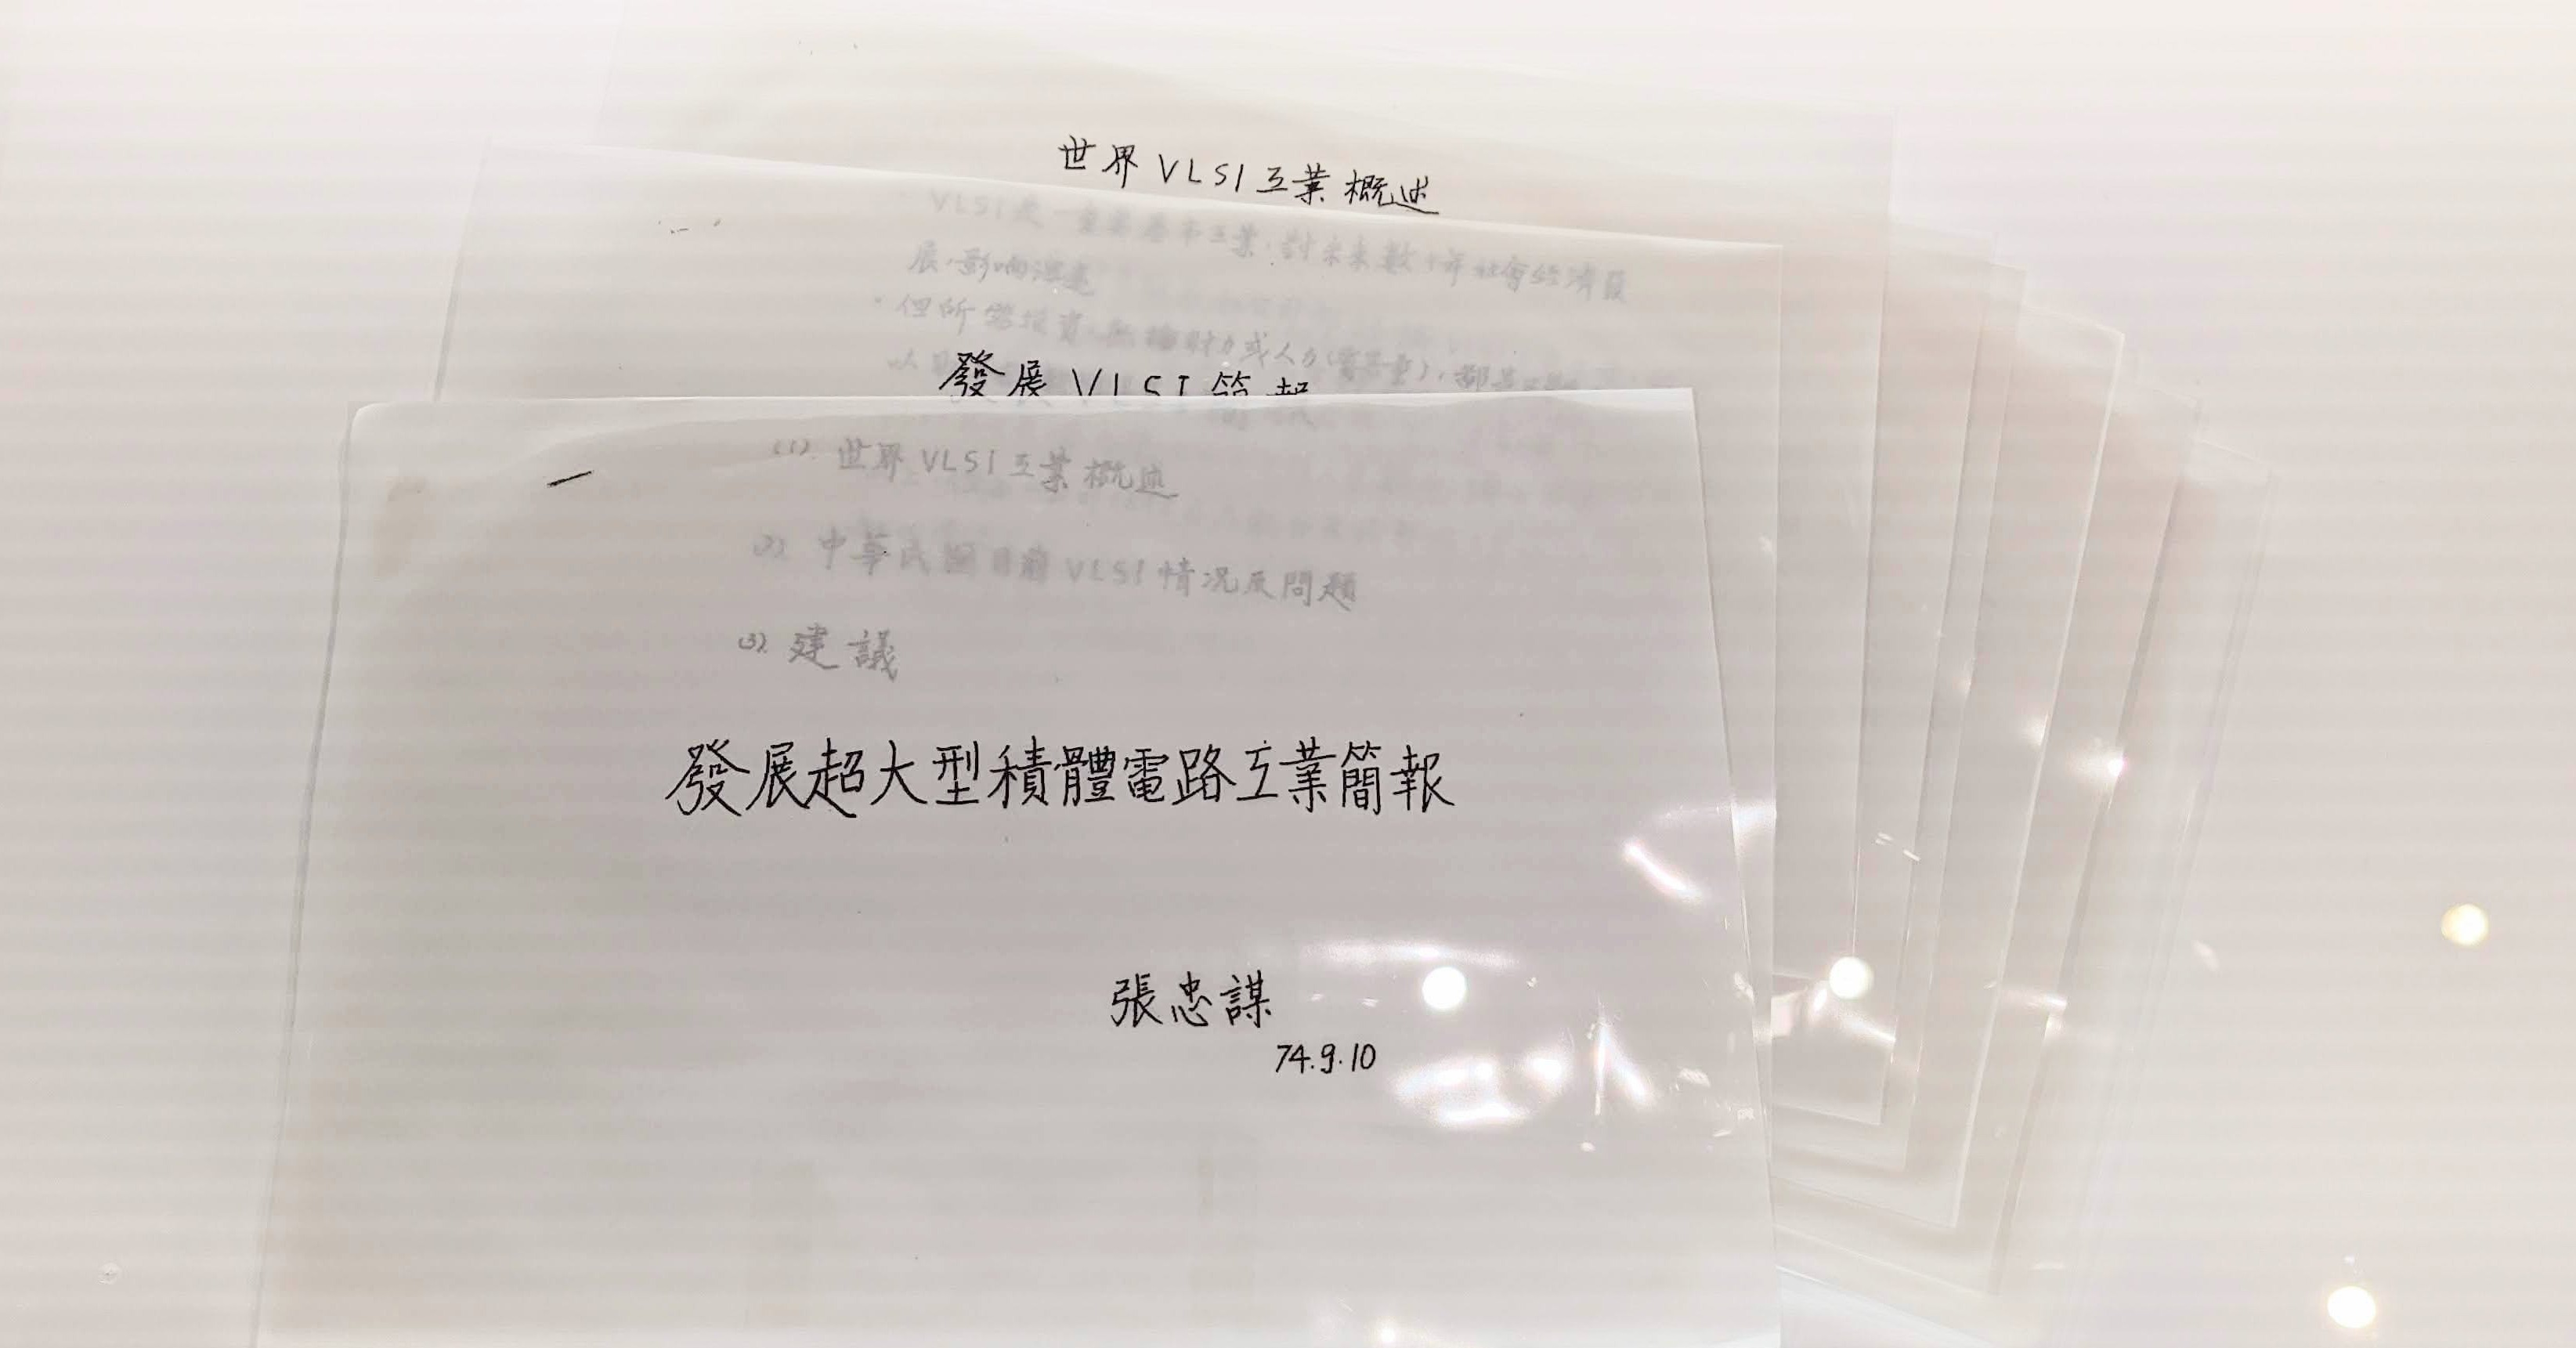 世界 VLSI 工業概述
VLSI 是一重要基本工業,對未來數十年社會經濟發
展,影响深遠
但所需投資,無論財力或人力
發展 VLSI 簡報
(1). 世界 VLSI 工業概述
(2). 中華民國目前 VLSI 情況及問題
(3). 建議
發展超大型積體電路工業簡報
張忠謀
74.9.10